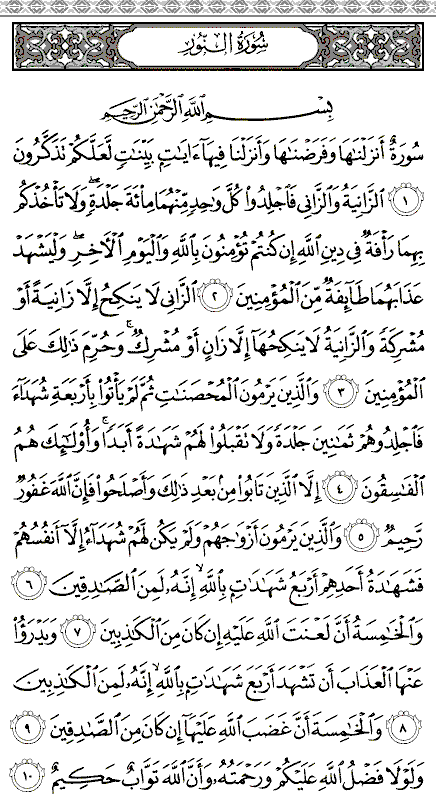 سُورَةُ النُّورِ
بِسْمِ اللَّهِ الرَّحْمَٰنِ الرَّحِيمِ
سُورَةٌ أَنزَلْنَٰهَا وَفَرَضْنَٰهَا وَأَنزَلْنَا فِيهَآ ءَايَٰتٍۭ بَيِّنَٰتٍ لَّعَلَّكُمْ تَذَكَّرُونَ
١ ٱلزَّانِيَةُ وَٱلزَّانِى فَٱجْلِدُوا۟ كُلَّ وَٰحِدٍ مِّنْهُمَا مِا۟ئَةَ جَلْدَةٍ ۖ وَلَا تَأْخُذْكُم
بِهِمَا رَأْفَةٌ فِى دِينِ ٱللَّهِ إِن كُنتُمْ تُؤْمِنُونَ بِٱللَّهِ وَٱلْيَوْمِ ٱلْءَاخِرِ ۖ وَلْيَشْهَدْ
عَذَابَهُمَا طَآئِفَةٌ مِّنَ ٱلْمُؤْمِنِينَ ٢ ٱلزَّانِى لَا يَنكِحُ إِلَّا زَانِيَةً أَوْ
مُشْرِكَةً وَٱلزَّانِيَةُ لَا يَنكِحُهَآ إِلَّا زَانٍ أَوْ مُشْرِكٌ ۚ وَحُرِّمَ ذَٰلِكَ عَلَى
ٱلْمُؤْمِنِينَ ٣ وَٱلَّذِينَ يَرْمُونَ ٱلْمُحْصَنَٰتِ ثُمَّ لَمْ يَأْتُوا۟ بِأَرْبَعَةِ شُهَدَآءَ
فَٱجْلِدُوهُمْ ثَمَٰنِينَ جَلْدَةً وَلَا تَقْبَلُوا۟ لَهُمْ شَهَٰدَةً أَبَدًا ۚ وَأُو۟لَٰٓئِكَ هُمُ
ٱلْفَٰسِقُونَ ٤ إِلَّا ٱلَّذِينَ تَابُوا۟ مِنۢ بَعْدِ ذَٰلِكَ وَأَصْلَحُوا۟ فَإِنَّ ٱللَّهَ غَفُورٌ
رَّحِيمٌ ٥ وَٱلَّذِينَ يَرْمُونَ أَزْوَٰجَهُمْ وَلَمْ يَكُن لَّهُمْ شُهَدَآءُ إِلَّآ أَنفُسُهُمْ
فَشَهَٰدَةُ أَحَدِهِمْ أَرْبَعُ شَهَٰدَٰتٍۭ بِٱللَّهِ ۙ إِنَّهُۥ لَمِنَ ٱلصَّٰدِقِينَ ٦
وَٱلْخَٰمِسَةُ أَنَّ لَعْنَتَ ٱللَّهِ عَلَيْهِ إِن كَانَ مِنَ ٱلْكَٰذِبِينَ ٧ وَيَدْرَؤُا۟
عَنْهَا ٱلْعَذَابَ أَن تَشْهَدَ أَرْبَعَ شَهَٰدَٰتٍۭ بِٱللَّهِ ۙ إِنَّهُۥ لَمِنَ ٱلْكَٰذِبِينَ
٨ وَٱلْخَٰمِسَةَ أَنَّ غَضَبَ ٱللَّهِ عَلَيْهَآ إِن كَانَ مِنَ ٱلصَّٰدِقِينَ ٩
وَلَوْلَا فَضْلُ ٱللَّهِ عَلَيْكُمْ وَرَحْمَتُهُۥ وَأَنَّ ٱللَّهَ تَوَّابٌ حَكِيمٌ ١٠